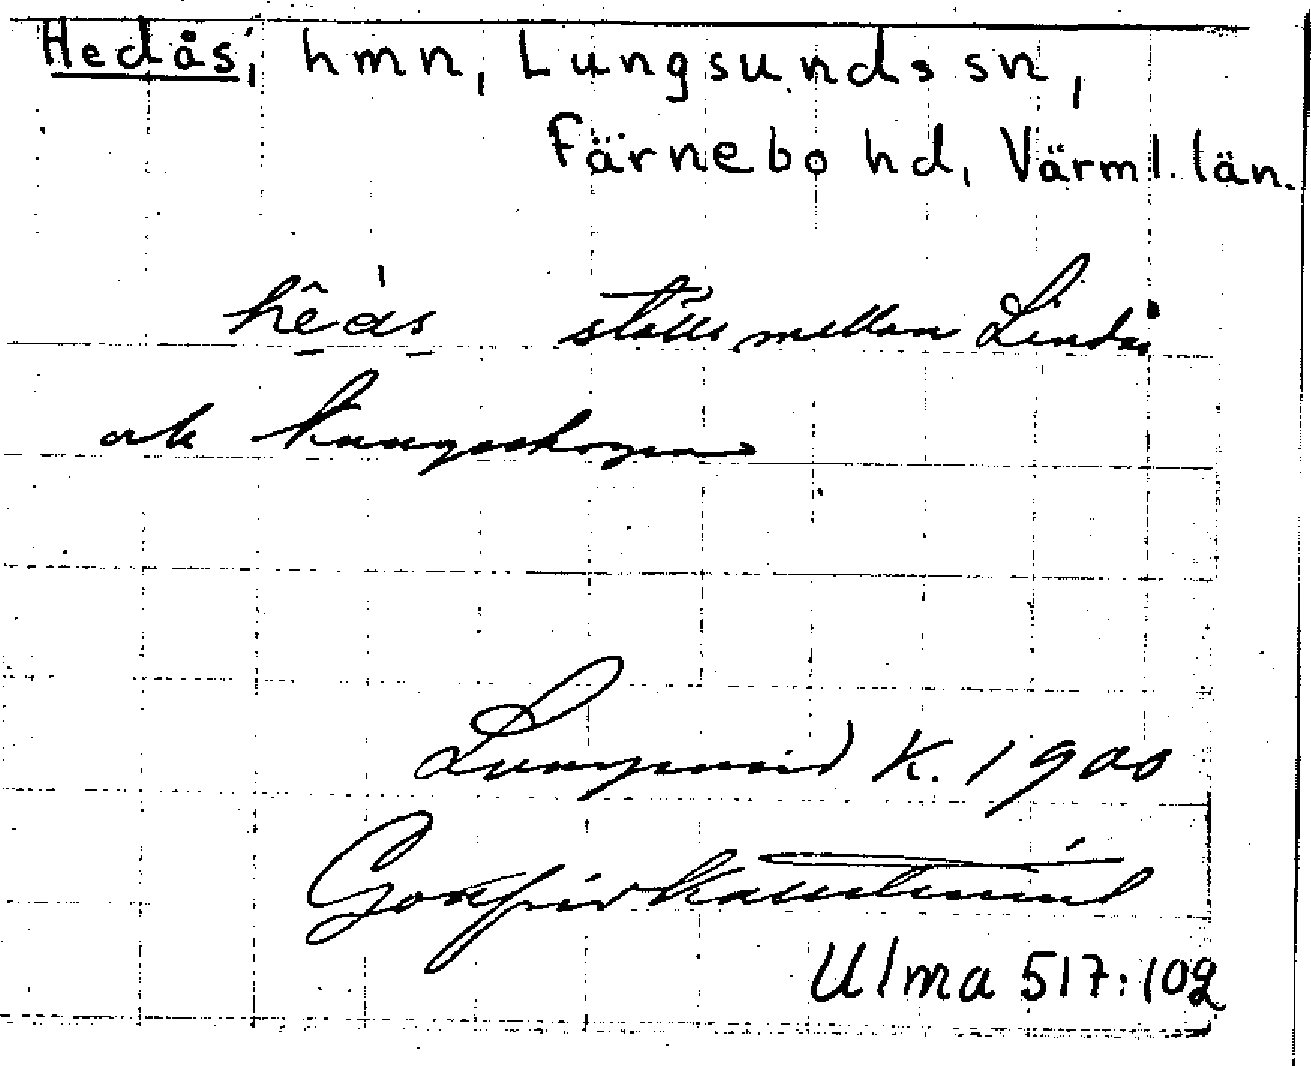 Hedås, hmn, Lungsunds sn,
Färnebo hd, Värml. län.
hêás ställe mellan Lindås
ock Kungsskogen
Lungsund K. 1900
Gottfrid Kallstenius
Ulma 517:102